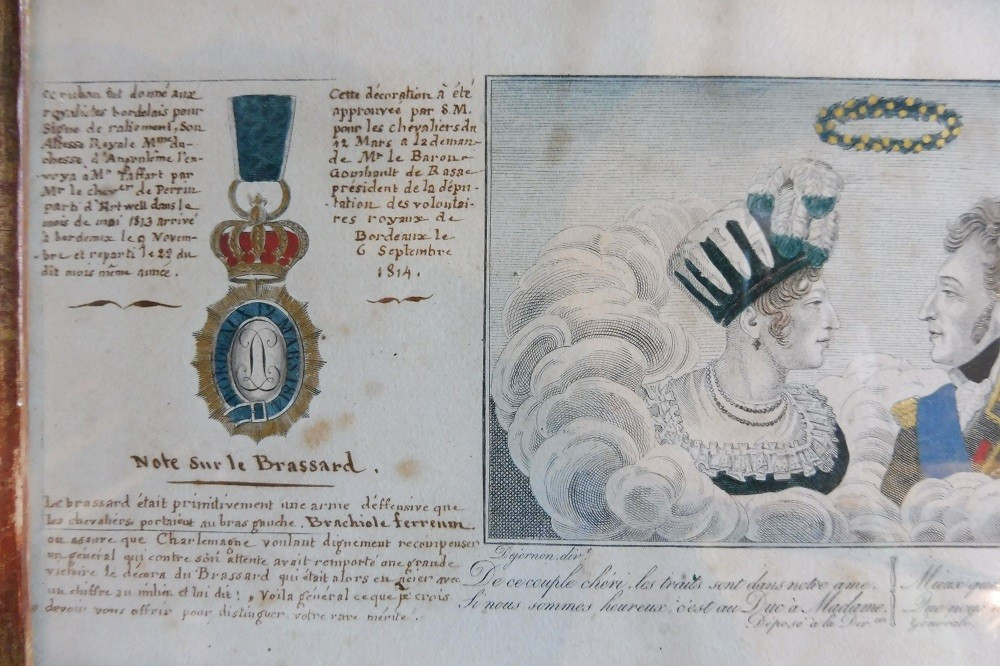 Ce ruban fut donné aux
royalistes bordelais pour
Signe de raliement, Son
Altesse Royale Mme du-
chesse d'Angoulême l'en-
voya à Mr Taffart par
Mr le chever de Perrin
parti d'Artwell dans le
mois de mai 1813 arrivé
à bordeaux le 9 Novem-
-bre et reparti le 29 du
dit mois même année.
Cette décoration à été
approuvée par S.M.
pour les chevaliers du
12 Mars à la deman-
de de Mr le Baron
Gombault de Rasac
président de la dépu-
-tation des volontai-
res royaux de
Bordeaux le
6 Septembre
1814.
BORDEAUX 12 MARS 181
Note sur le Brassard.
Le brassard était primitivement une arme déffensive que
les chevaliers portaient au bras gauche, Brachiole ferreum
on assure que Charlemagne voulant dignement recompenser
un général qui contre son attente avait remporté une grande
victoire le décora du Brassard qui était alors en acier avec
un chiffre au milieu et lui dit: Voila général ce que je crois
devoir vous offrir pour distinguer votre rare mérite.
Dejernon dir.t
De ce couple chéri, les traits sont dans notre ame,
Si nous sommes heureux, c'est au Duc à Madame.
Déposé à la Dir.on
Mieux que
Que nous
Générale.